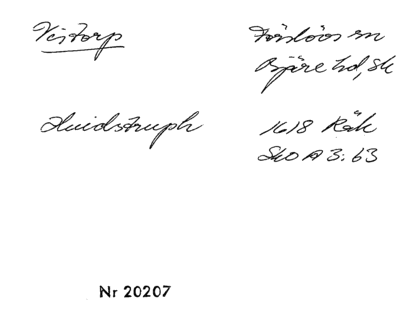 Vistorp
Förslövs sn
Bjäre hd, Sk
Huidstruph
1618 Räk
SkO A 3:63
Nr 20207